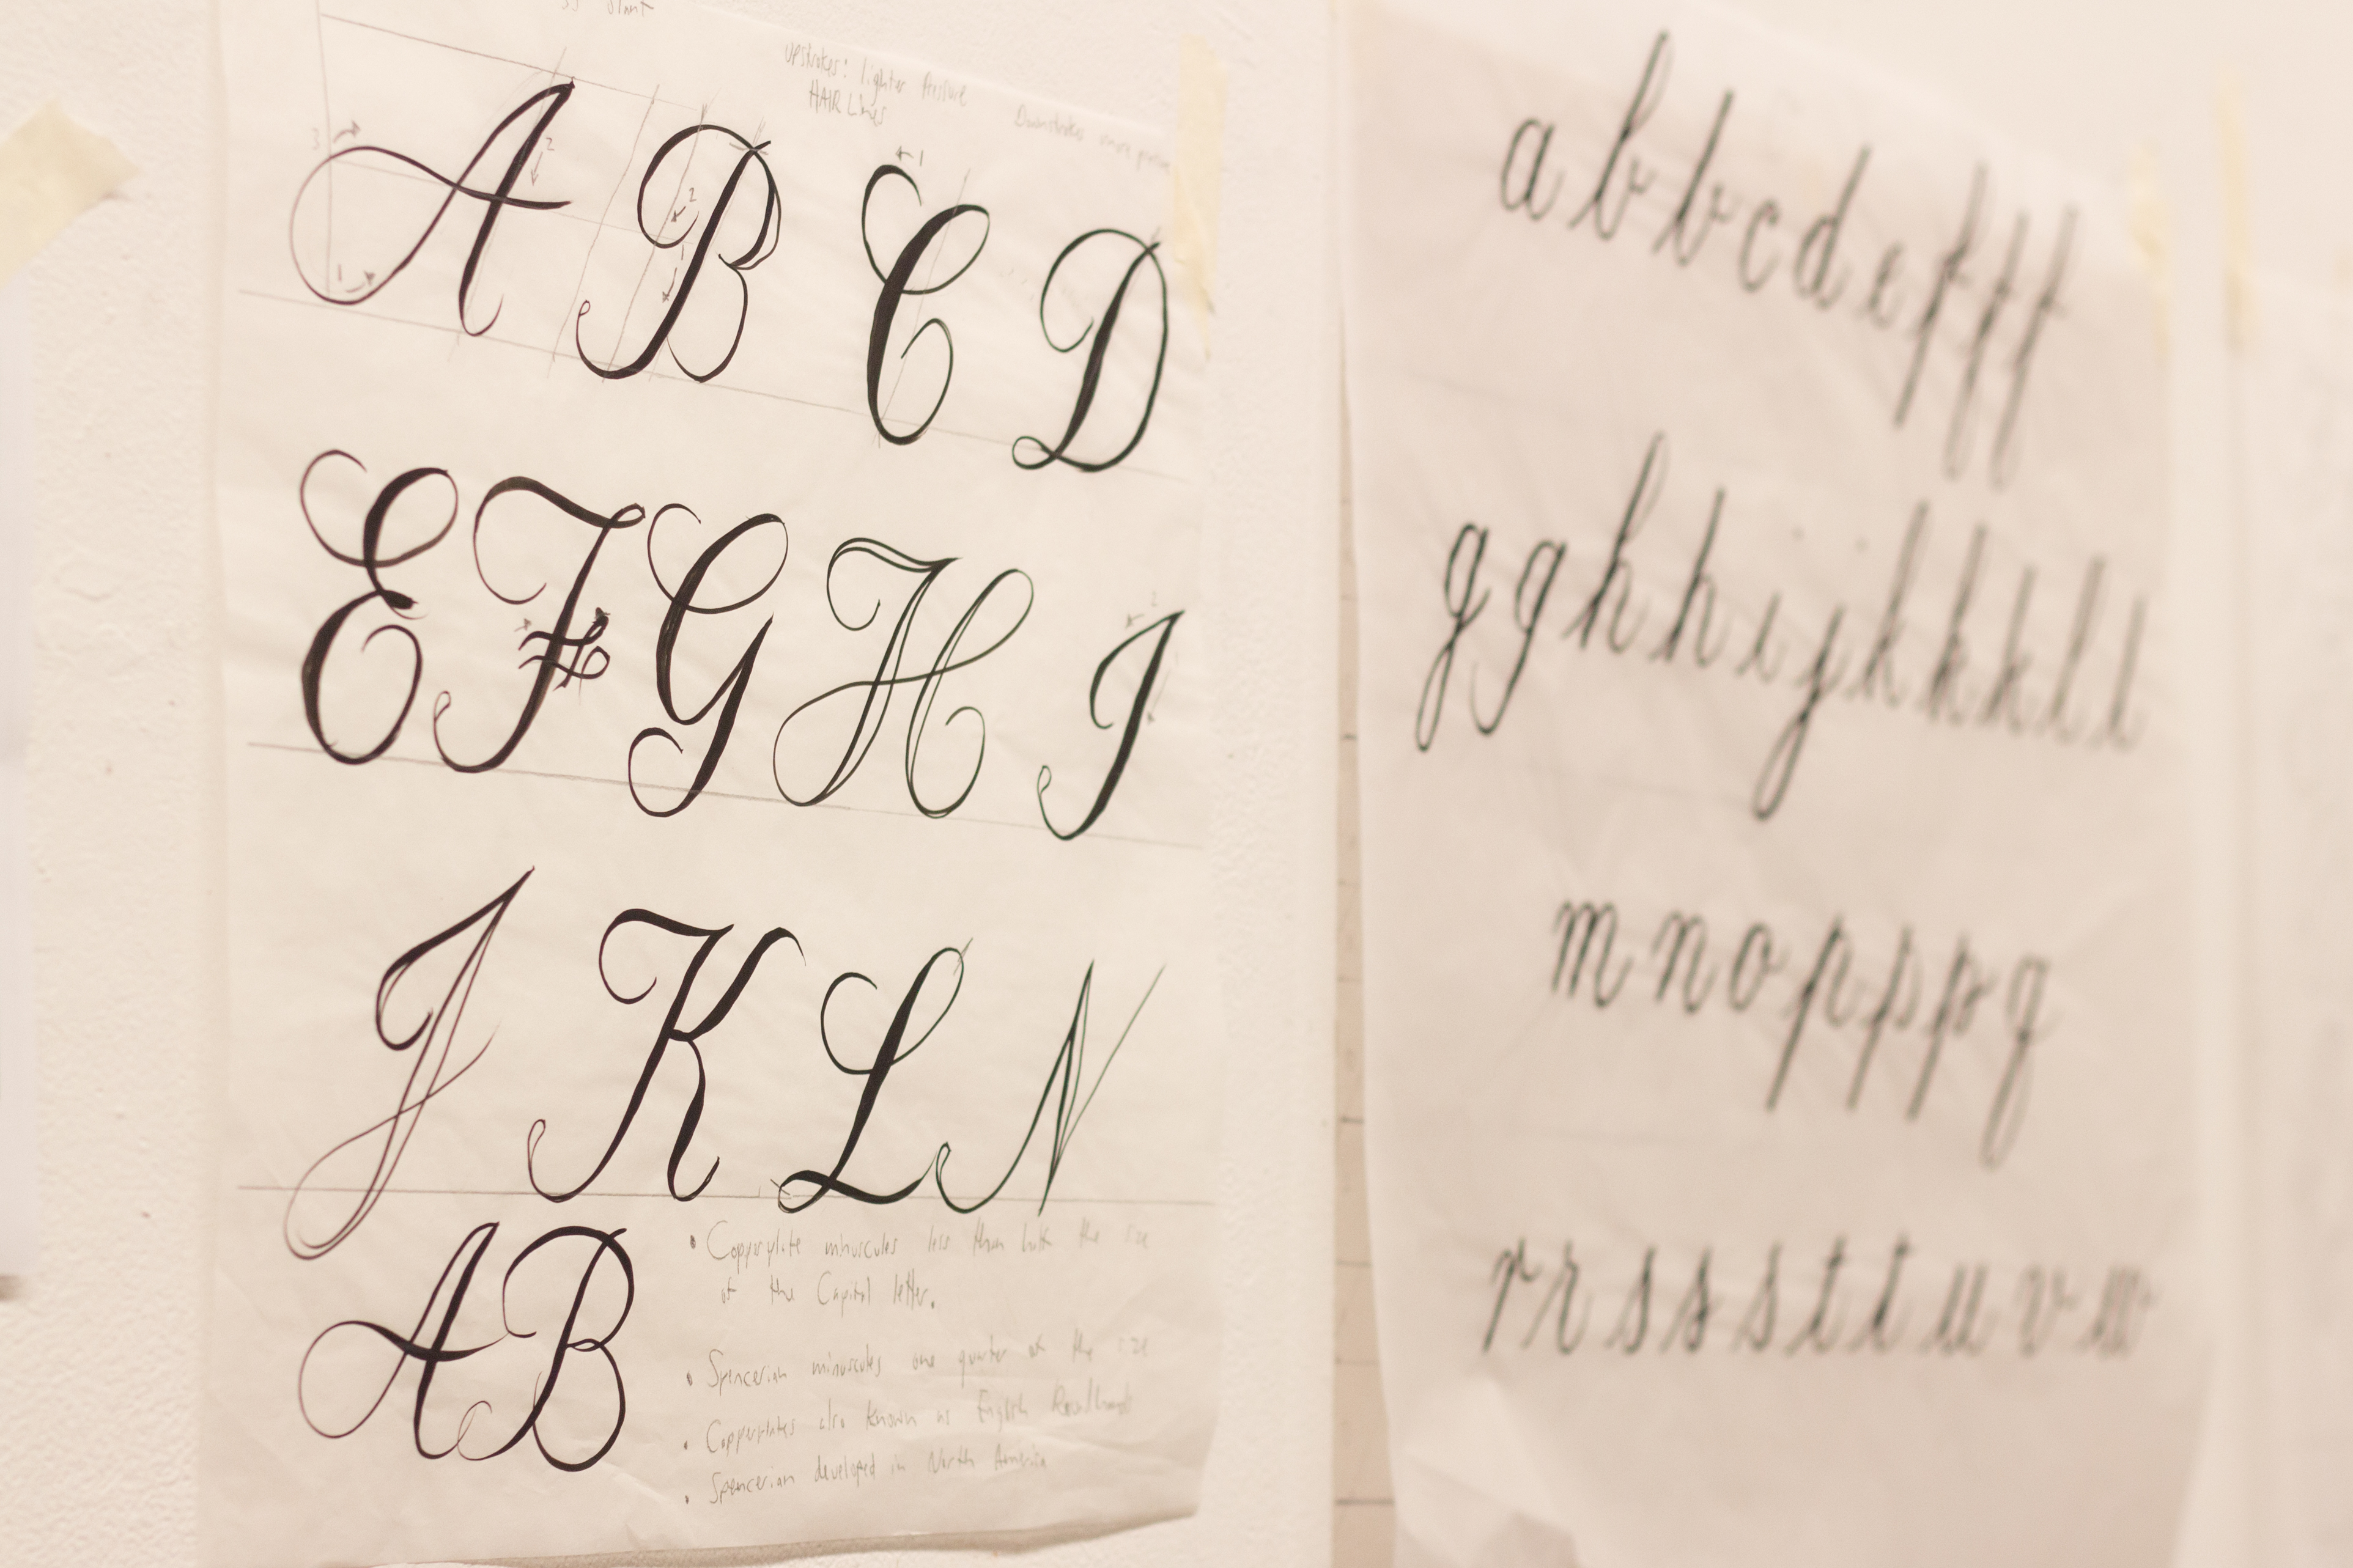 Upstrokes: lighter Pressure
HAIR Lines
Downstrokes more
A B C D
3
2
1
2
1
1
E F G H I
2
J K L N
A B
• Copperplate minuscules less than half the size
of the Capital letter.
• Spencerian minuscules one quarter of the size
• Copperplates also known as English Roundhands
• Spencerian developed in North America
a b b c d e f f f
g g h h i j k k k l l
m n o p p p q
r r s s s t t u v w